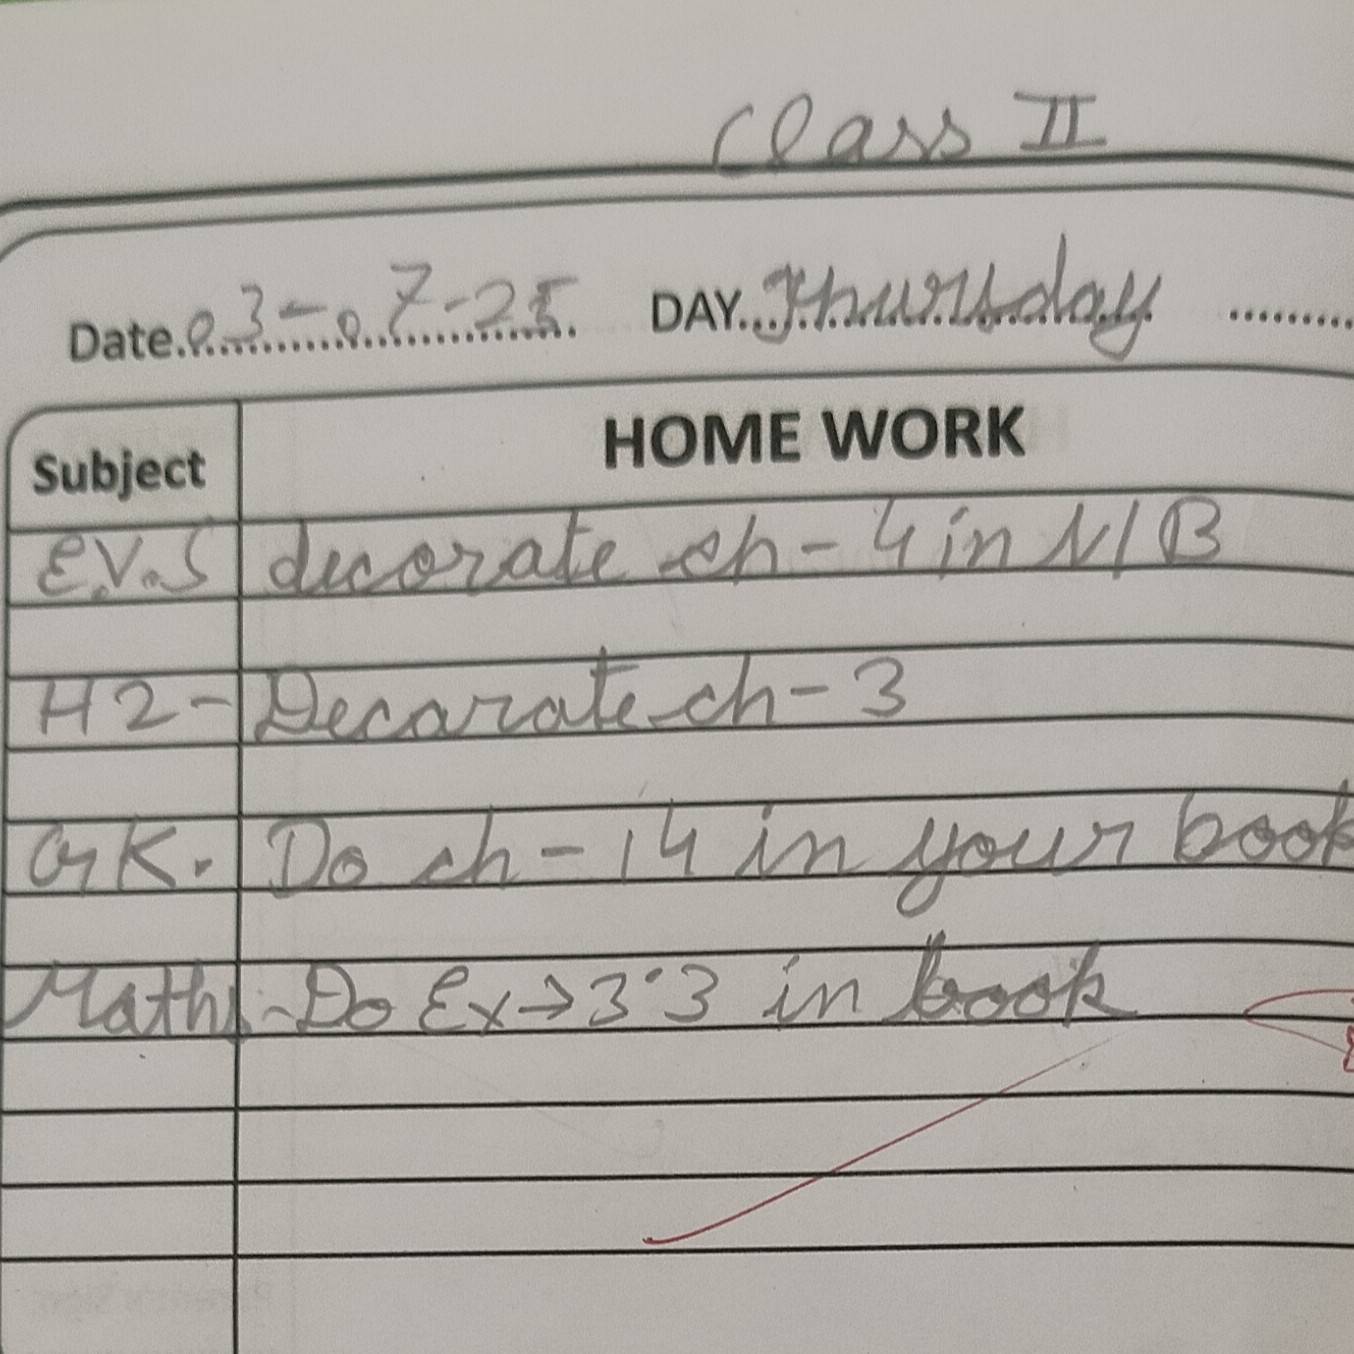 Class II
Date. 03-07-25 DAY. Thursday
Subject HOME WORK
E.V.S decorate ch-4 in N/B
H2- Decarate ch-3
GK. Do ch-14 in your book
Maths- Do Ex→3.3 in book